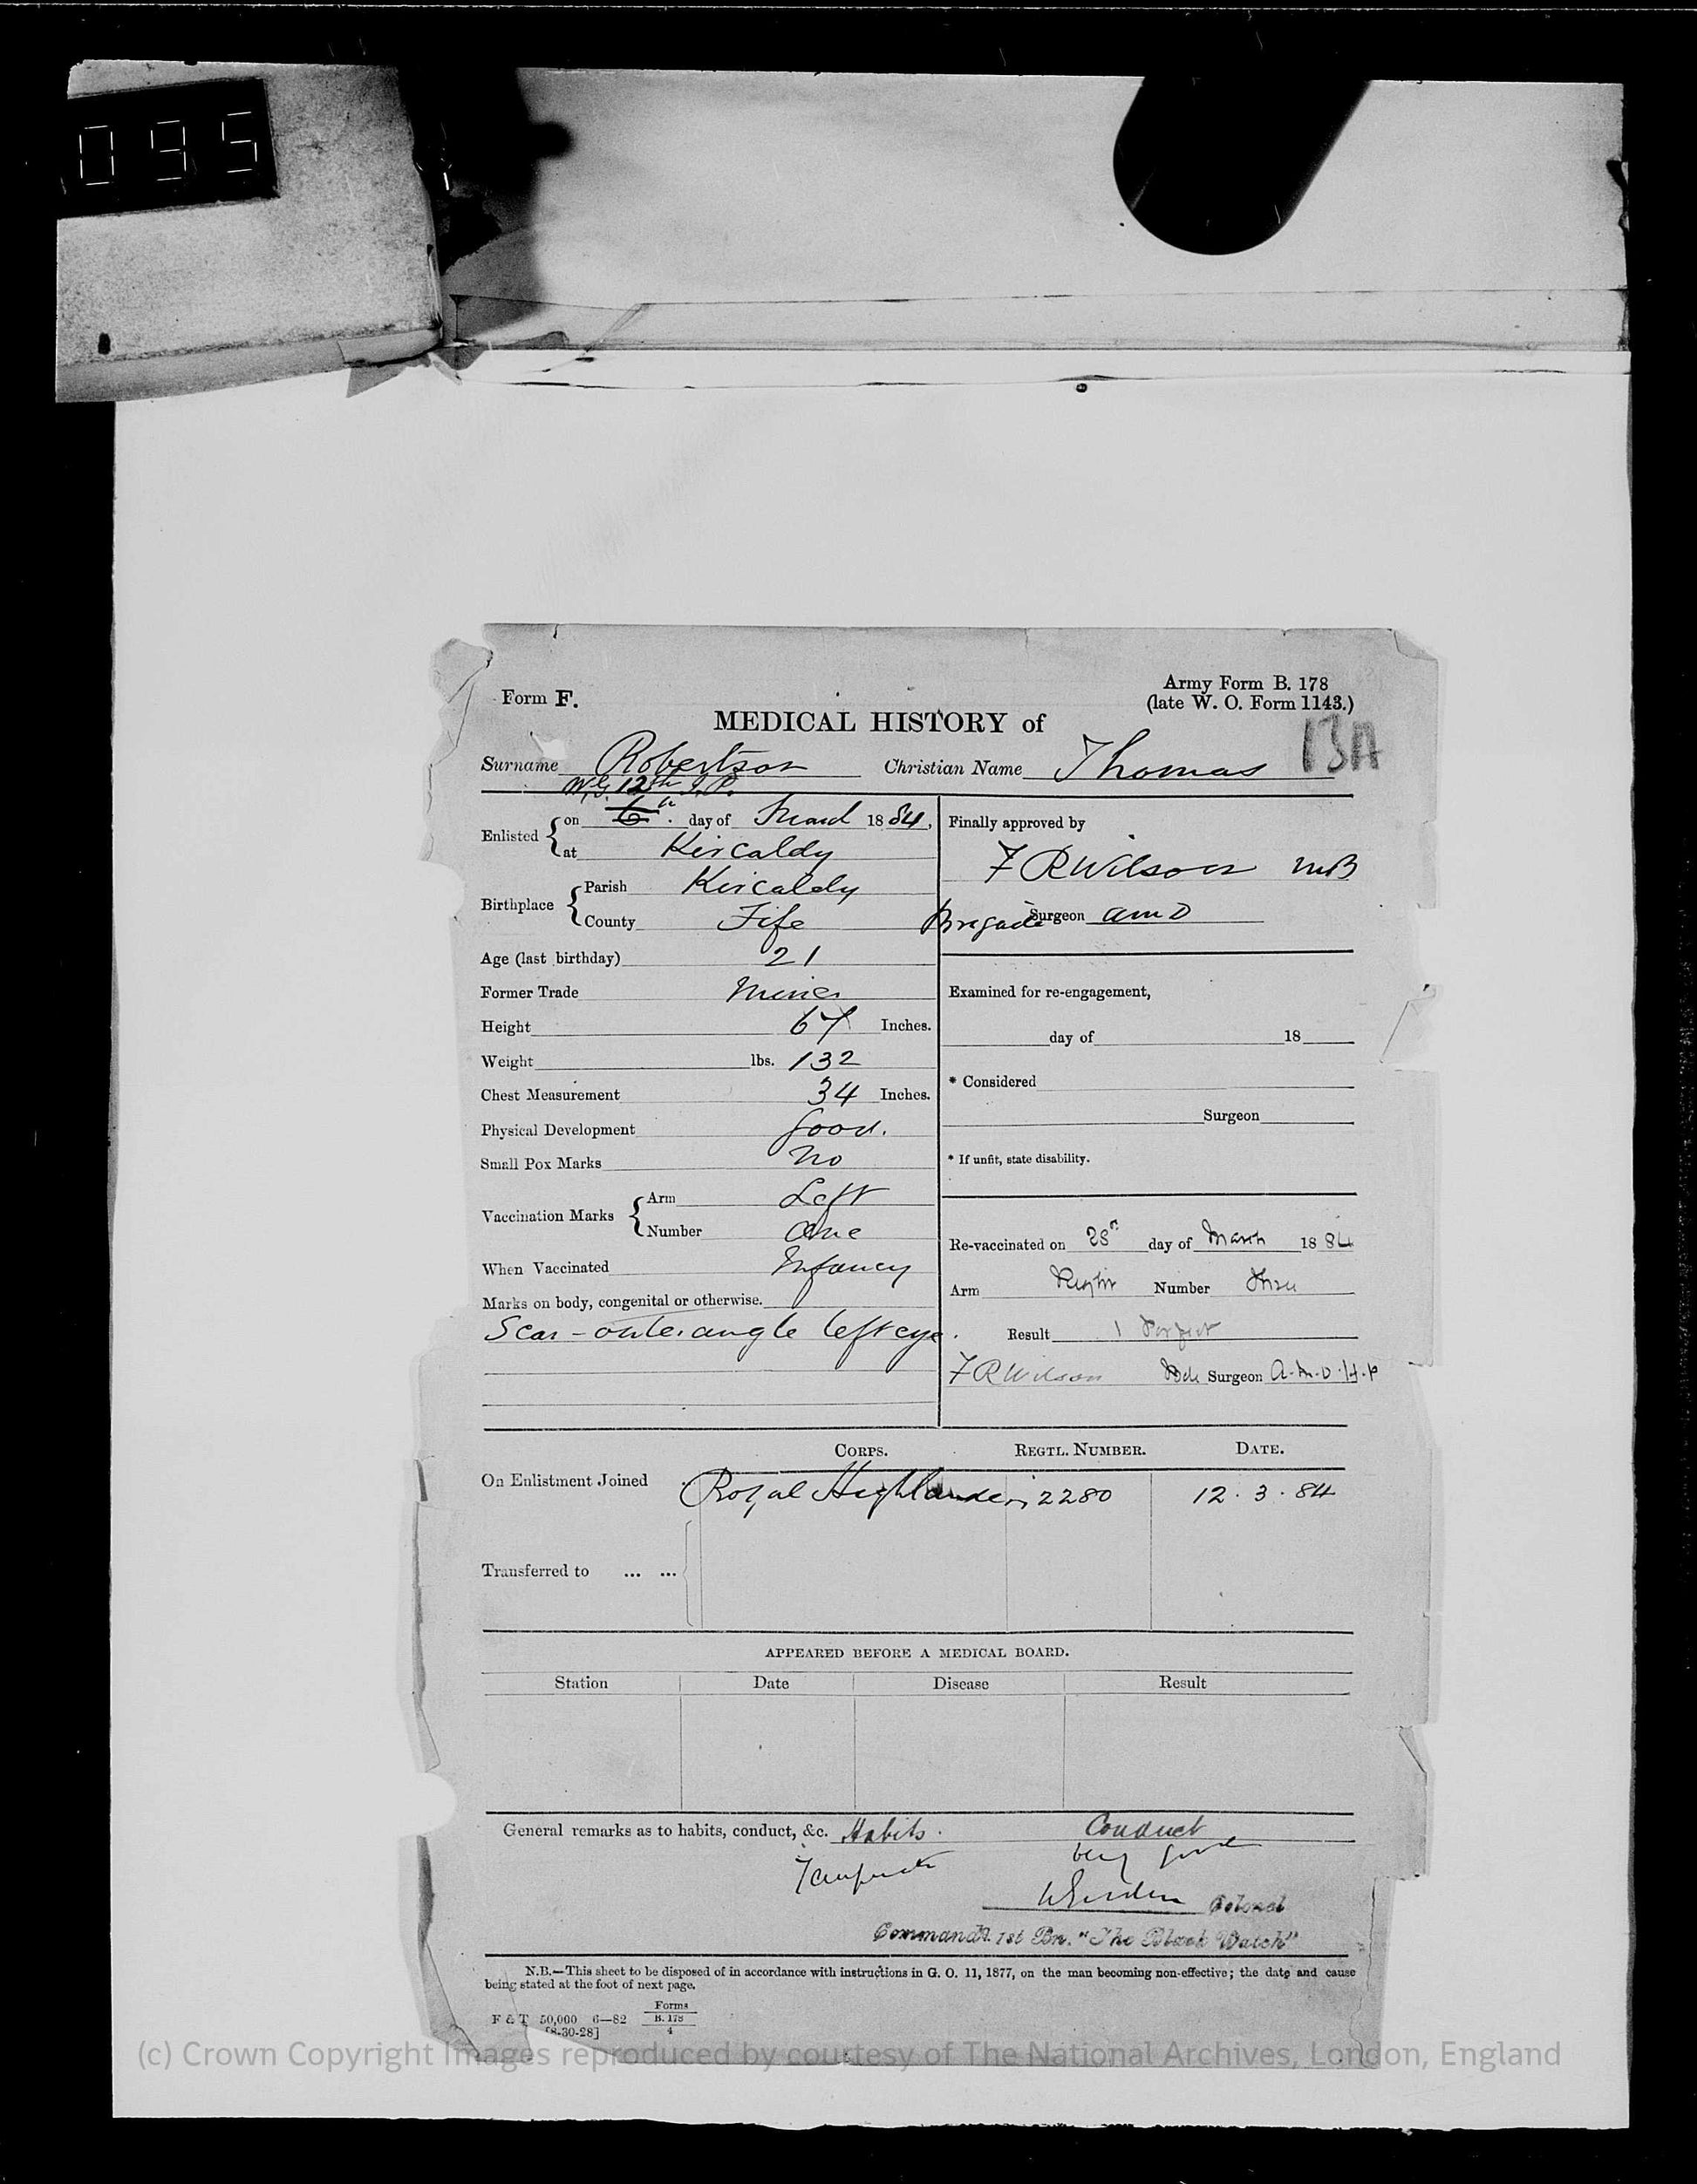 095
Form F.
Army Form B. 178
(late W. O. Form 1143.)
MEDICAL HISTORY of
13A
Surname Robertson Christian Name Thomas
12th
Enlisted { on 6th. day of March 1884,
at Kircaldy
Birthplace { Parish Kircaldy
County Fife
Age (last birthday) 21
Former Trade Miner
Height 67 Inches.
Weight lbs. 132
Chest Measurement 34 Inches.
Physical Development Good.
Small Pox Marks No
Vaccination Marks { Arm Left
Number One
When Vaccinated Infancy
Marks on body, congenital or otherwise.
Scar - outer angle left eye.
Finally approved by
F R Wilson MB
Brigade Surgeon AMD
Examined for re-engagement,
day of 18
* Considered
Surgeon
* If unfit, state disability.
Re-vaccinated on 28th day of March 1884
Arm Right Number Three
Result 1 Perfect
F R Wilson Bde Surgeon A.M.D. H.P
CORPS. REGTL. NUMBER. DATE.
On Enlistment Joined Royal Highlanders 2280 12.3.84
Transferred to ... ...
APPEARED BEFORE A MEDICAL BOARD.
Station Date Disease Result
General remarks as to habits, conduct, &c. Habits. Conduct
Temperate very good
Colonel
Commandg. 1st Bn. "The Black Watch"
N.B.—This sheet to be disposed of in accordance with instructions in G. O. 11, 1877, on the man becoming non-effective; the date and cause
being stated at the foot of next page.
F & T 50,000 6—82 Forms B. 178 4
[8-30-28]
(c) Crown Copyright Images reproduced by courtesy of The National Archives, London, England